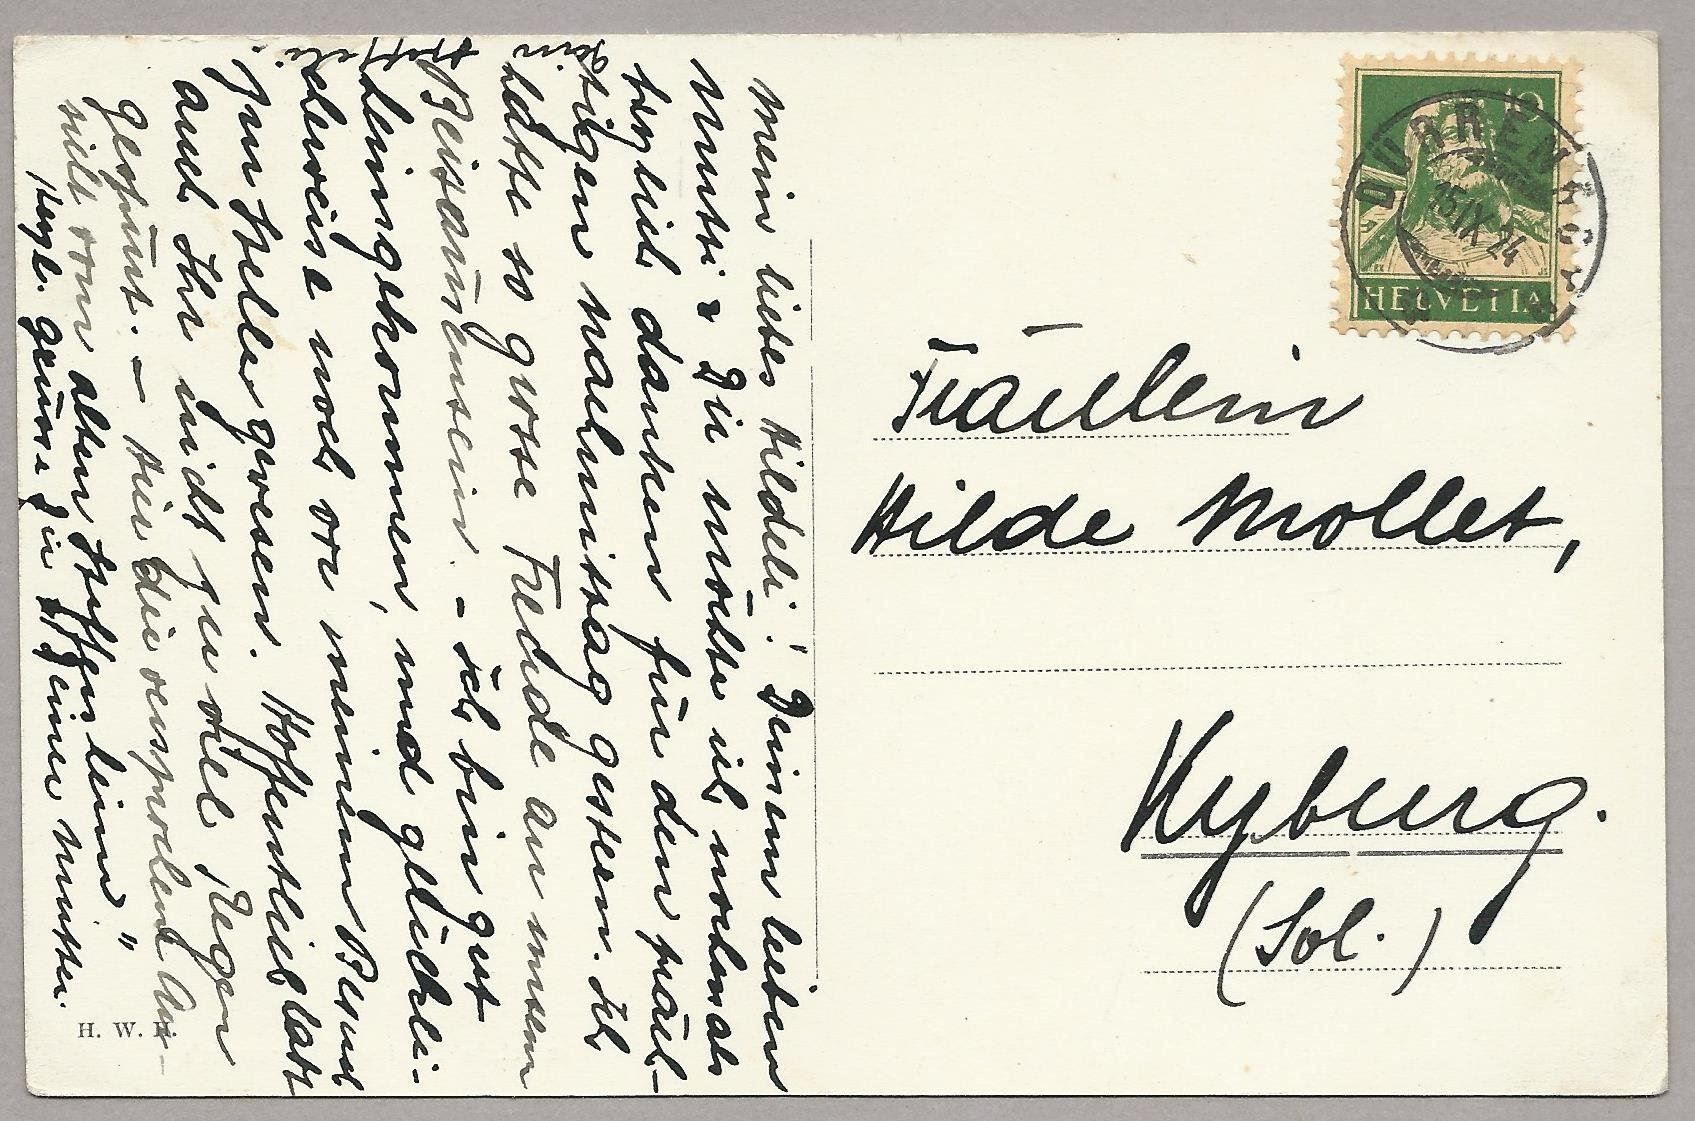 Mein liebes Hildeli! Deinem lieben
Mutti & Dir möchte ich nochmals
herzlich danken für den präch-
tigen Nachmittag gestern. Ich
hatte so grosse Freude an unserm
Beisammensein. – Ich bin gut
heimgekommen, und glückli-
cherweise noch vor meinem Besuch
zur Stelle gewesen. Hoffentlich habt
auch Ihr nicht zu viel Regen
gespürt. – Hier die versprochene An-
sicht vom alten
Herzl. Grüsse Dir
HELVETIA
10
DÜRRENAST
15.IX.24
Fräulein
Hilde Mollet,
Kyburg.
(Sol.)
H. W.